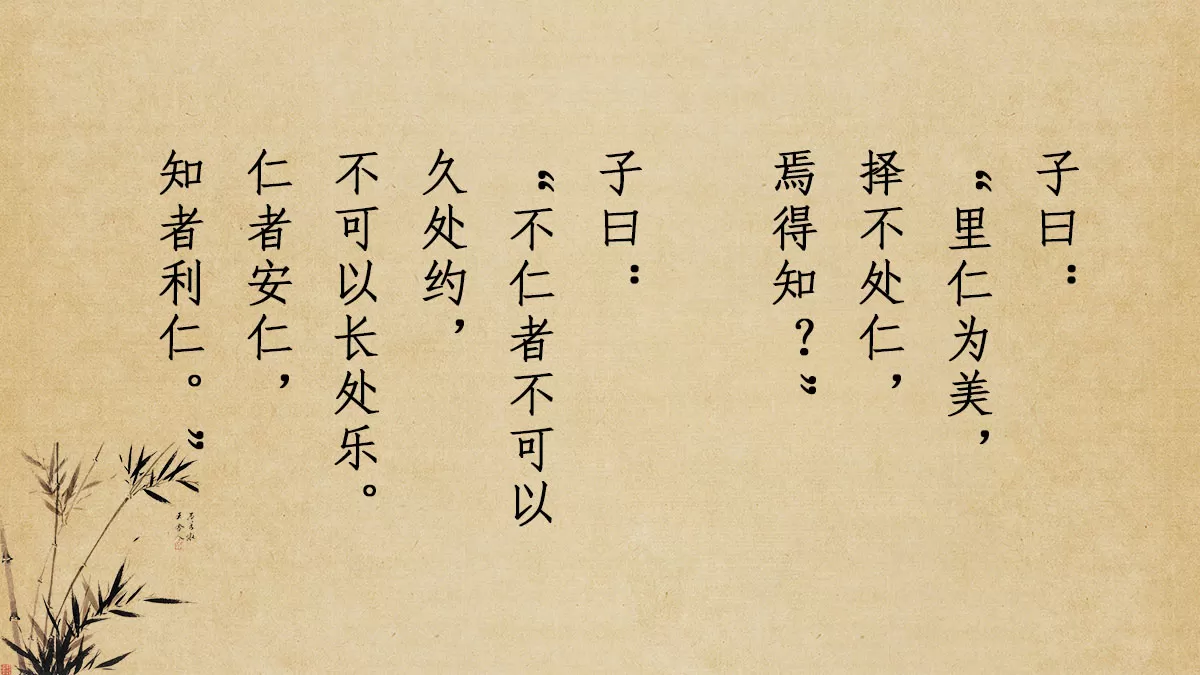 子曰：
“里仁为美，
择不处仁，
焉得知？”
子曰：
“不仁者不可以
久处约，
不可以长处乐。
仁者安仁，
知者利仁。”